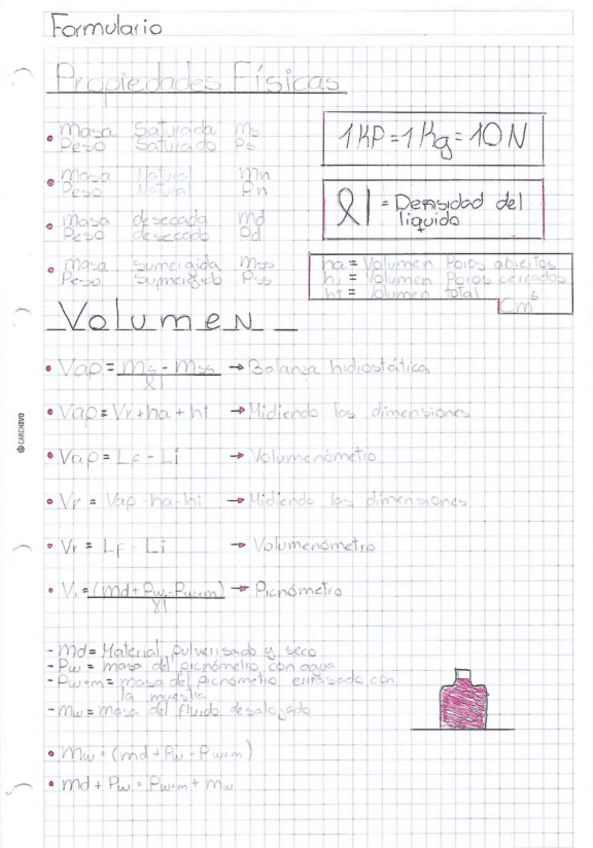 Formulario
Propiedades Físicas
• Masa Saturada Ms
Peso Saturado Ps
• Masa Natural Mn
Peso Natural Pn
• Masa desecada Md
Peso desecado Pd
• Masa Sumergida
Peso Sumergido
1KP=1Kg=10N
= Densidad del
líquido
ha = Volumen Poros abiertos
hi = Volumen Poros cerrados
ht = Volumen total
Cm³
Volumen
• Vap = → Balanza hidrostática
• Vap = Vr + ha + hi → Midiendo las dimensiones
• Vap = Lf - Li → Volumenómetro
• Vr = Vap - ha - hi → Midiendo las dimensiones
• Vr = Lf - Li → Volumenómetro
• Vr = (md + Pw - Pw+m) → Picnómetro
- Md = Material pulverisado y seco
- Pw = masa del picnómetro con agua
- Pw+m = masa del picnómetro enrasado con
la muestra
- Mw = Masa del fluido desalojado
• Mw = (md + Pw - Pw+m)
• md + Pw = Pw+m + mw
CARCHIVO